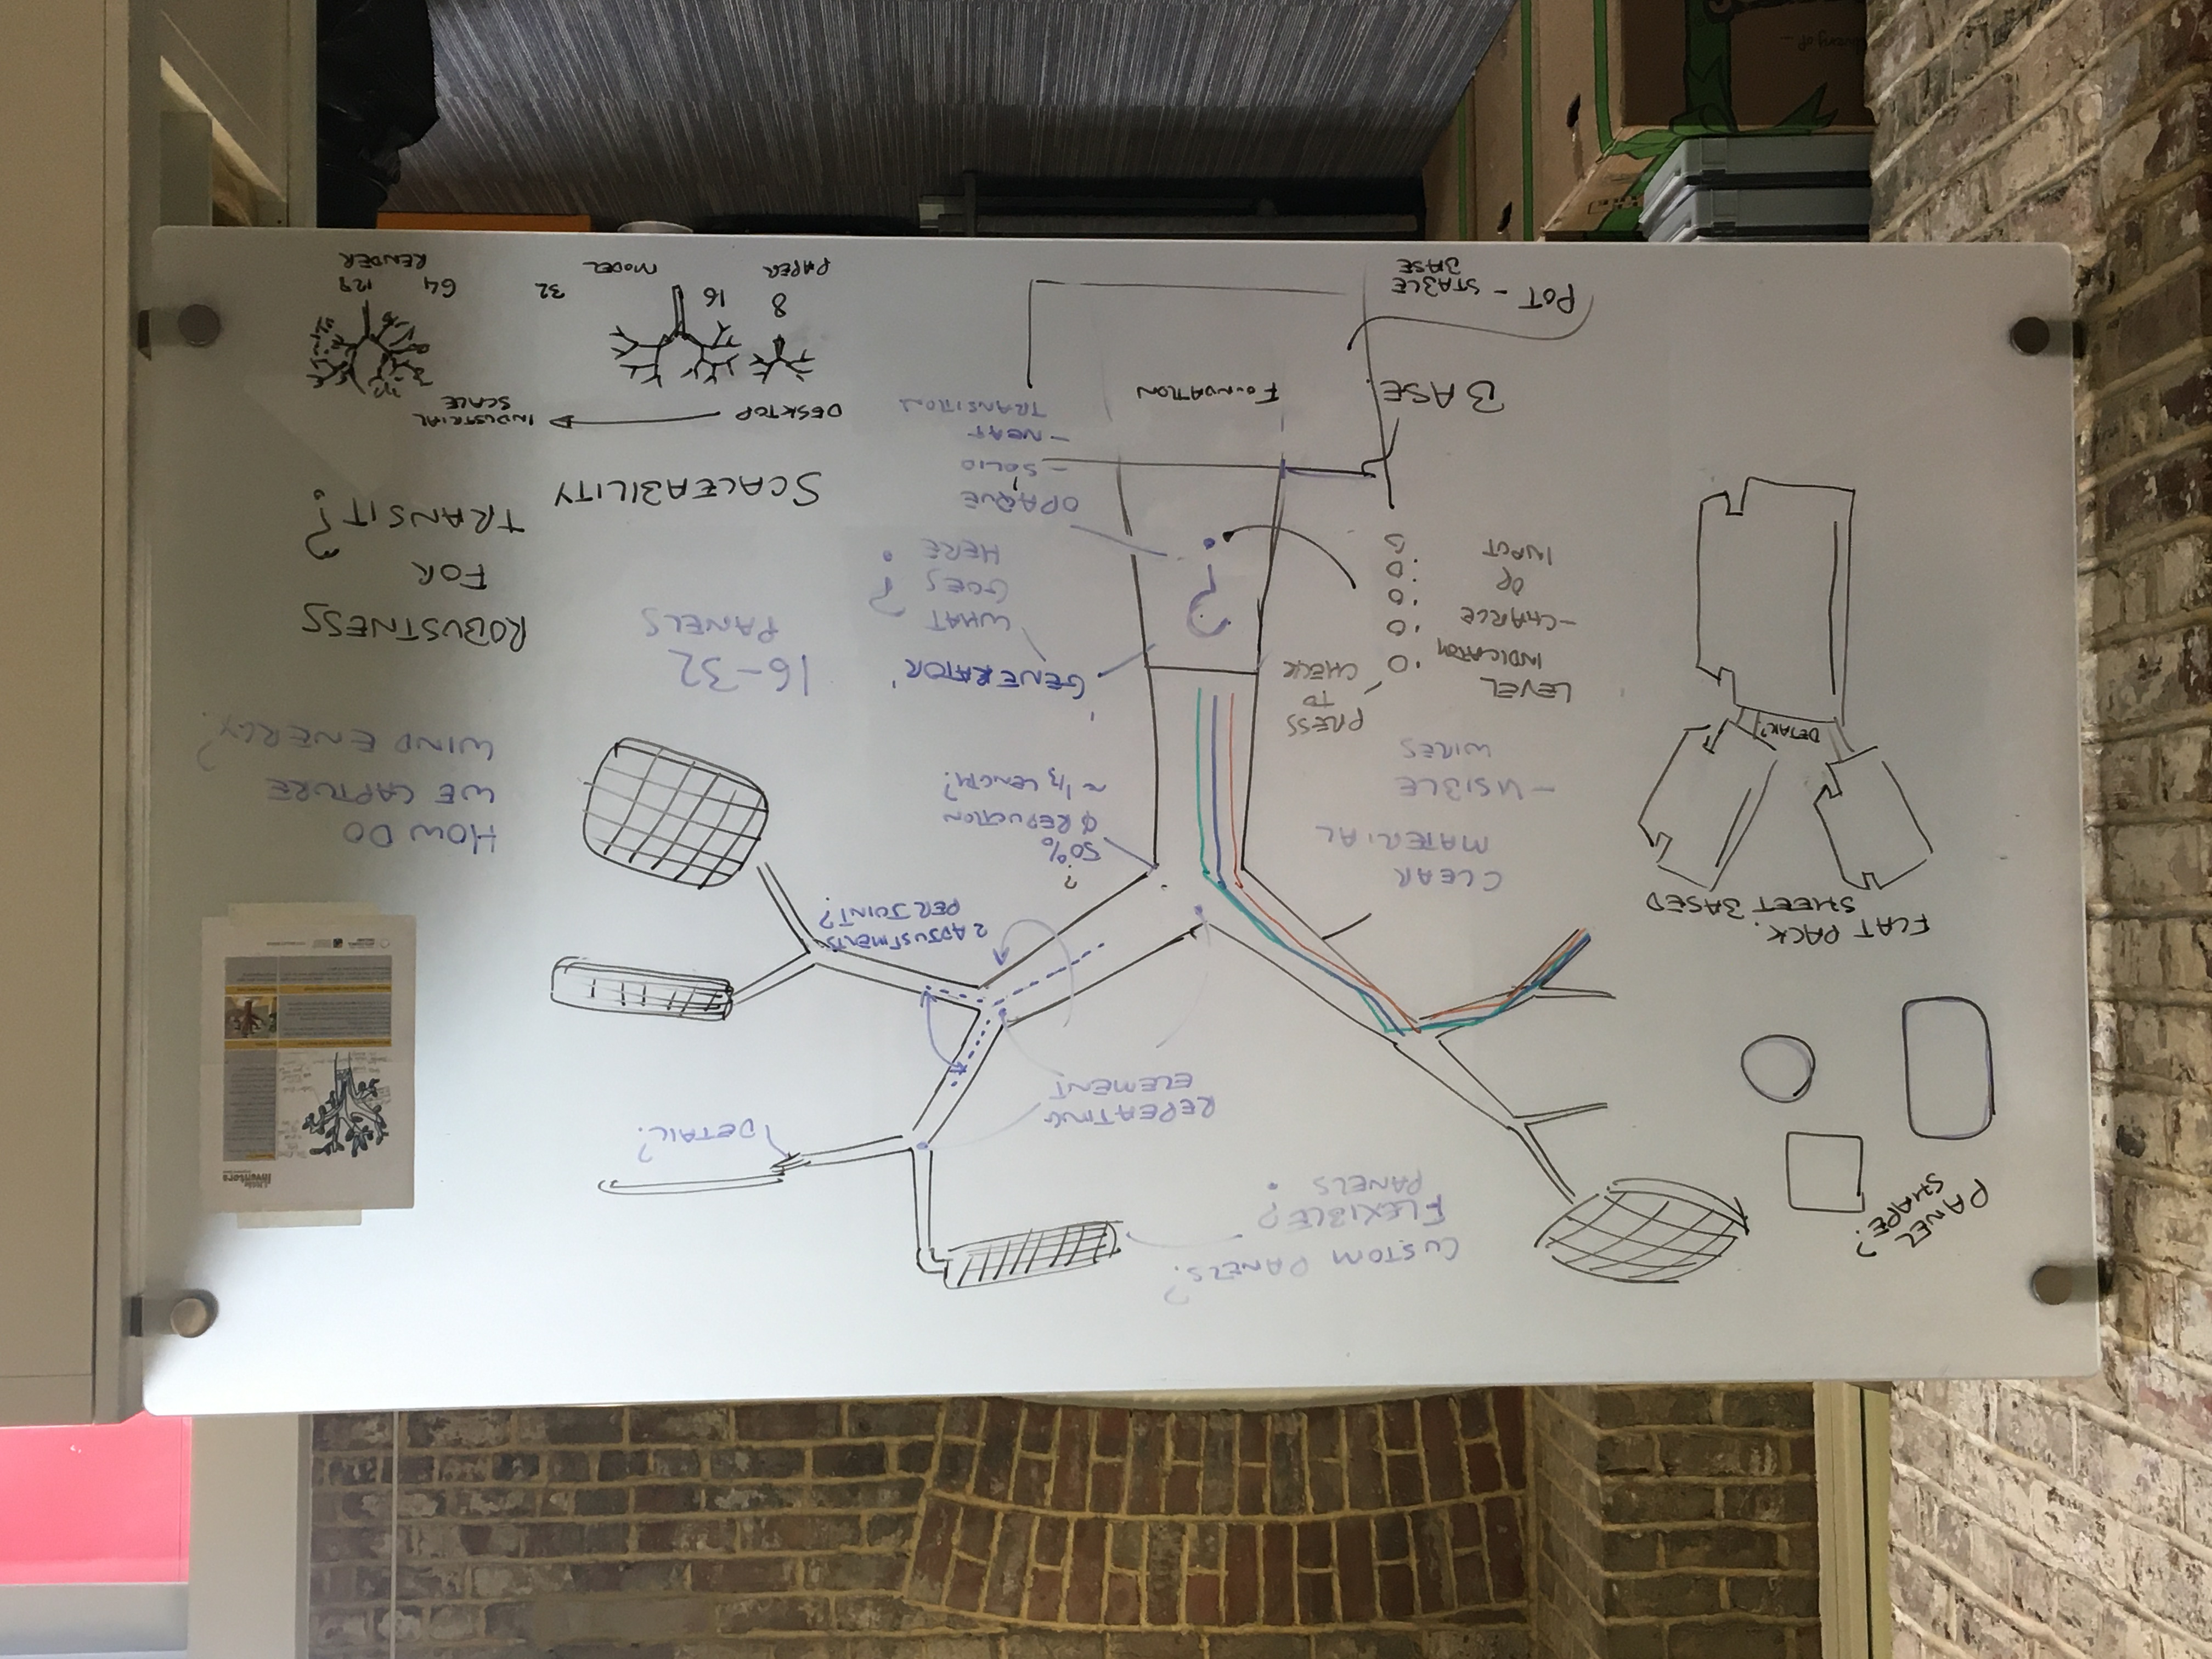 PANEL
SHAPE?
CUSTOM PANELS?
FLEXIBLE?
PANELS
REPEATING
ELEMENT
DETAIL?
little
inventors
FLAT PACK.
SHEET BASED
DETAIL?
CLEAR
MATERIAL
- VISIBLE
WIRES
2 ADJUSTMENTS
PER JOINT?
?
50%
Φ REDUCTION
~ 1/3 LENGTH?
HOW DO
WE CAPTURE
WIND ENERGY?
LEVEL
INDICATOR
- CHARGE
OR
INPUT
PRESS
TO
CHECK
'GENERATOR'
WHAT
GOES
HERE?
?
16-32
PANELS
ROBUSTNESS
FOR
TRANSIT?
OPAQUE
- SOLID
- NEAT
TRANSITION
SCALEABILITY
BASE
FOUNDATION
DESKTOP
INDUSTRIAL
SCALE
POT - STABLE
BASE
8
PAPER
16
MODEL
32
64
128
RENDER